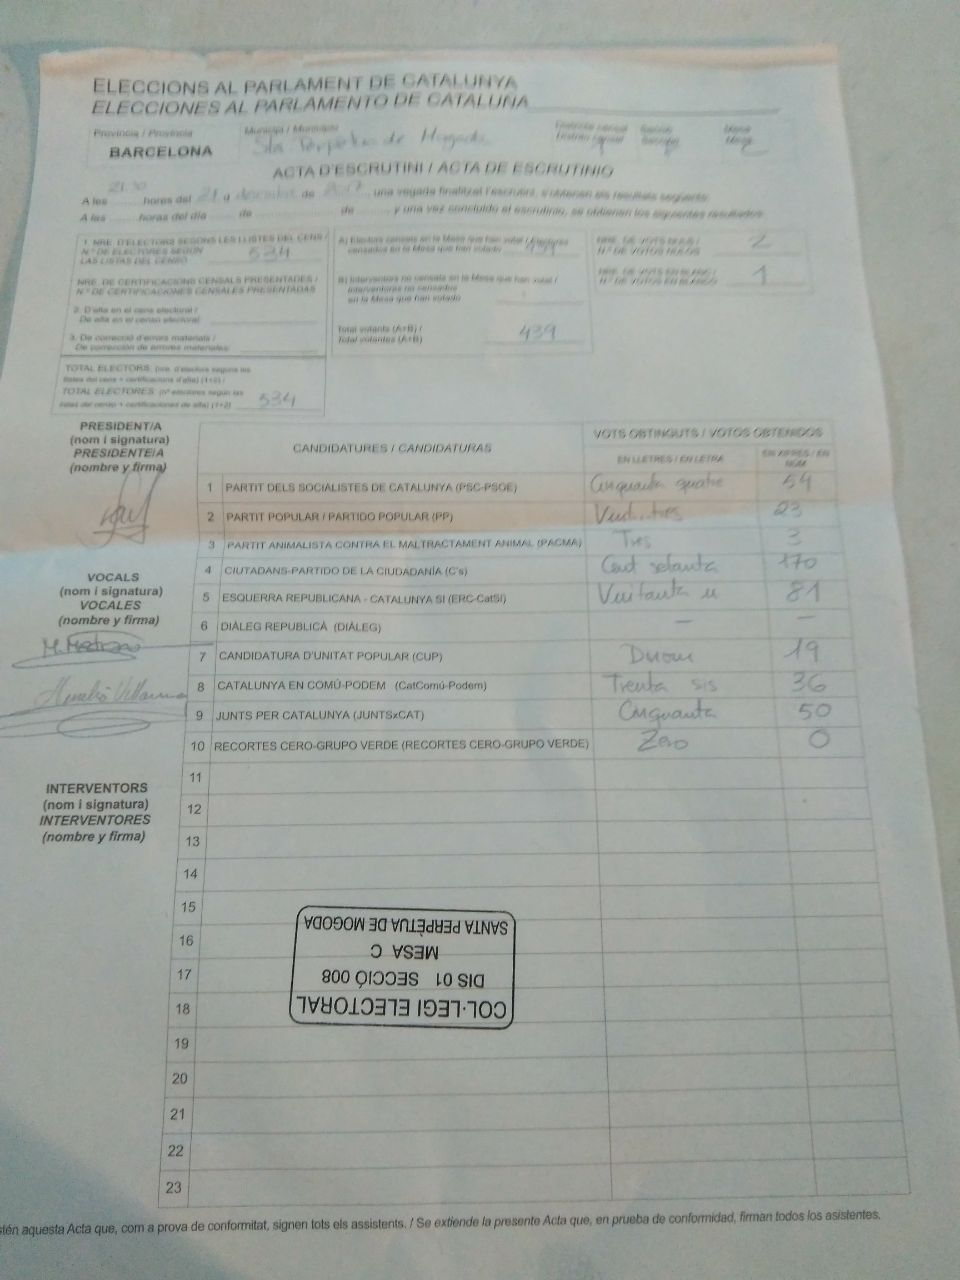 ELECCIONS AL PARLAMENT DE CATALUNYA
ELECCIONES AL PARLAMENTO DE CATALUÑA
Província / Provincia
BARCELONA
Municipi / Municipio
Sta Perpètua de Mogoda
ACTA D'ESCRUTINI / ACTA DE ESCRUTINIO
A les 21:30 hores del 21 d desembre de 2017 una vegada finalitzat l'escrutini, s'obtenen els resultats següents:
A las ........ horas del día ........ de ........ de ........ y una vez concluido el escrutinio, se obtienen los siguientes resultados:
1. NRE. D'ELECTORS SEGONS LES LLISTES DEL CENS /
N.º DE ELECTORES SEGÚN
LAS LISTAS DEL CENSO
534
NRE. DE CERTIFICACIONS CENSALS PRESENTADES /
N.º DE CERTIFICACIONES CENSALES PRESENTADAS
2. D'alta en el cens electoral /
De alta en el censo electoral:
3. De correcció d'errors materials /
De corrección de errores materiales:
TOTAL ELECTORS: (nre. d'electors segons les
llistes del cens + certificacions d'alta) (1+2) /
TOTAL ELECTORES: (nº electores según las
listas del censo + certificaciones de alta) (1+2)
534
A) Electors censats en la Mesa que han votat / Electores
censados en la Mesa que han votado
439
B) Interventors no censats en la Mesa que han votat /
Interventores no censados
en la Mesa que han votado
Total votants (A+B) /
Total votantes (A+B)
439
NRE. DE VOTS NULS /
N.º DE VOTOS NULOS
2
NRE. DE VOTS EN BLANC /
N.º DE VOTOS EN BLANCO
1
PRESIDENT/A
(nom i signatura)
PRESIDENTE/A
(nombre y firma)
VOCALS
(nom i signatura)
VOCALES
(nombre y firma)
INTERVENTORS
(nom i signatura)
INTERVENTORES
(nombre y firma)
CANDIDATURES / CANDIDATURAS
VOTS OBTINGUTS / VOTOS OBTENIDOS
EN LLETRES / EN LETRA
EN XIFRES / EN NÚM
1 PARTIT DELS SOCIALISTES DE CATALUNYA (PSC-PSOE) Cinquanta quatre 54
2 PARTIT POPULAR / PARTIDO POPULAR (PP) Vint-i-tres 23
3 PARTIT ANIMALISTA CONTRA EL MALTRACTAMENT ANIMAL (PACMA) Tres 3
4 CIUTADANS-PARTIDO DE LA CIUDADANÍA (C's) Cent setanta 170
5 ESQUERRA REPUBLICANA - CATALUNYA SÍ (ERC-CatSí) Vuitanta u 81
6 DIÀLEG REPUBLICÀ (DIÀLEG) – –
7 CANDIDATURA D'UNITAT POPULAR (CUP) Dinou 19
8 CATALUNYA EN COMÚ-PODEM (CatComú-Podem) Trenta sis 36
9 JUNTS PER CATALUNYA (JUNTSxCAT) Cinquanta 50
10 RECORTES CERO-GRUPO VERDE (RECORTES CERO-GRUPO VERDE) Zero 0
11
12
13
14
15
16
17
18
19
20
21
22
23
COL·LEGI ELECTORAL
DIS 01 SECCIÓ 008
MESA C
SANTA PERPÈTUA DE MOGODA
estén aquesta Acta que, com a prova de conformitat, signen tots els assistents. / Se extiende la presente Acta que, en prueba de conformidad, firman todos los asistentes.